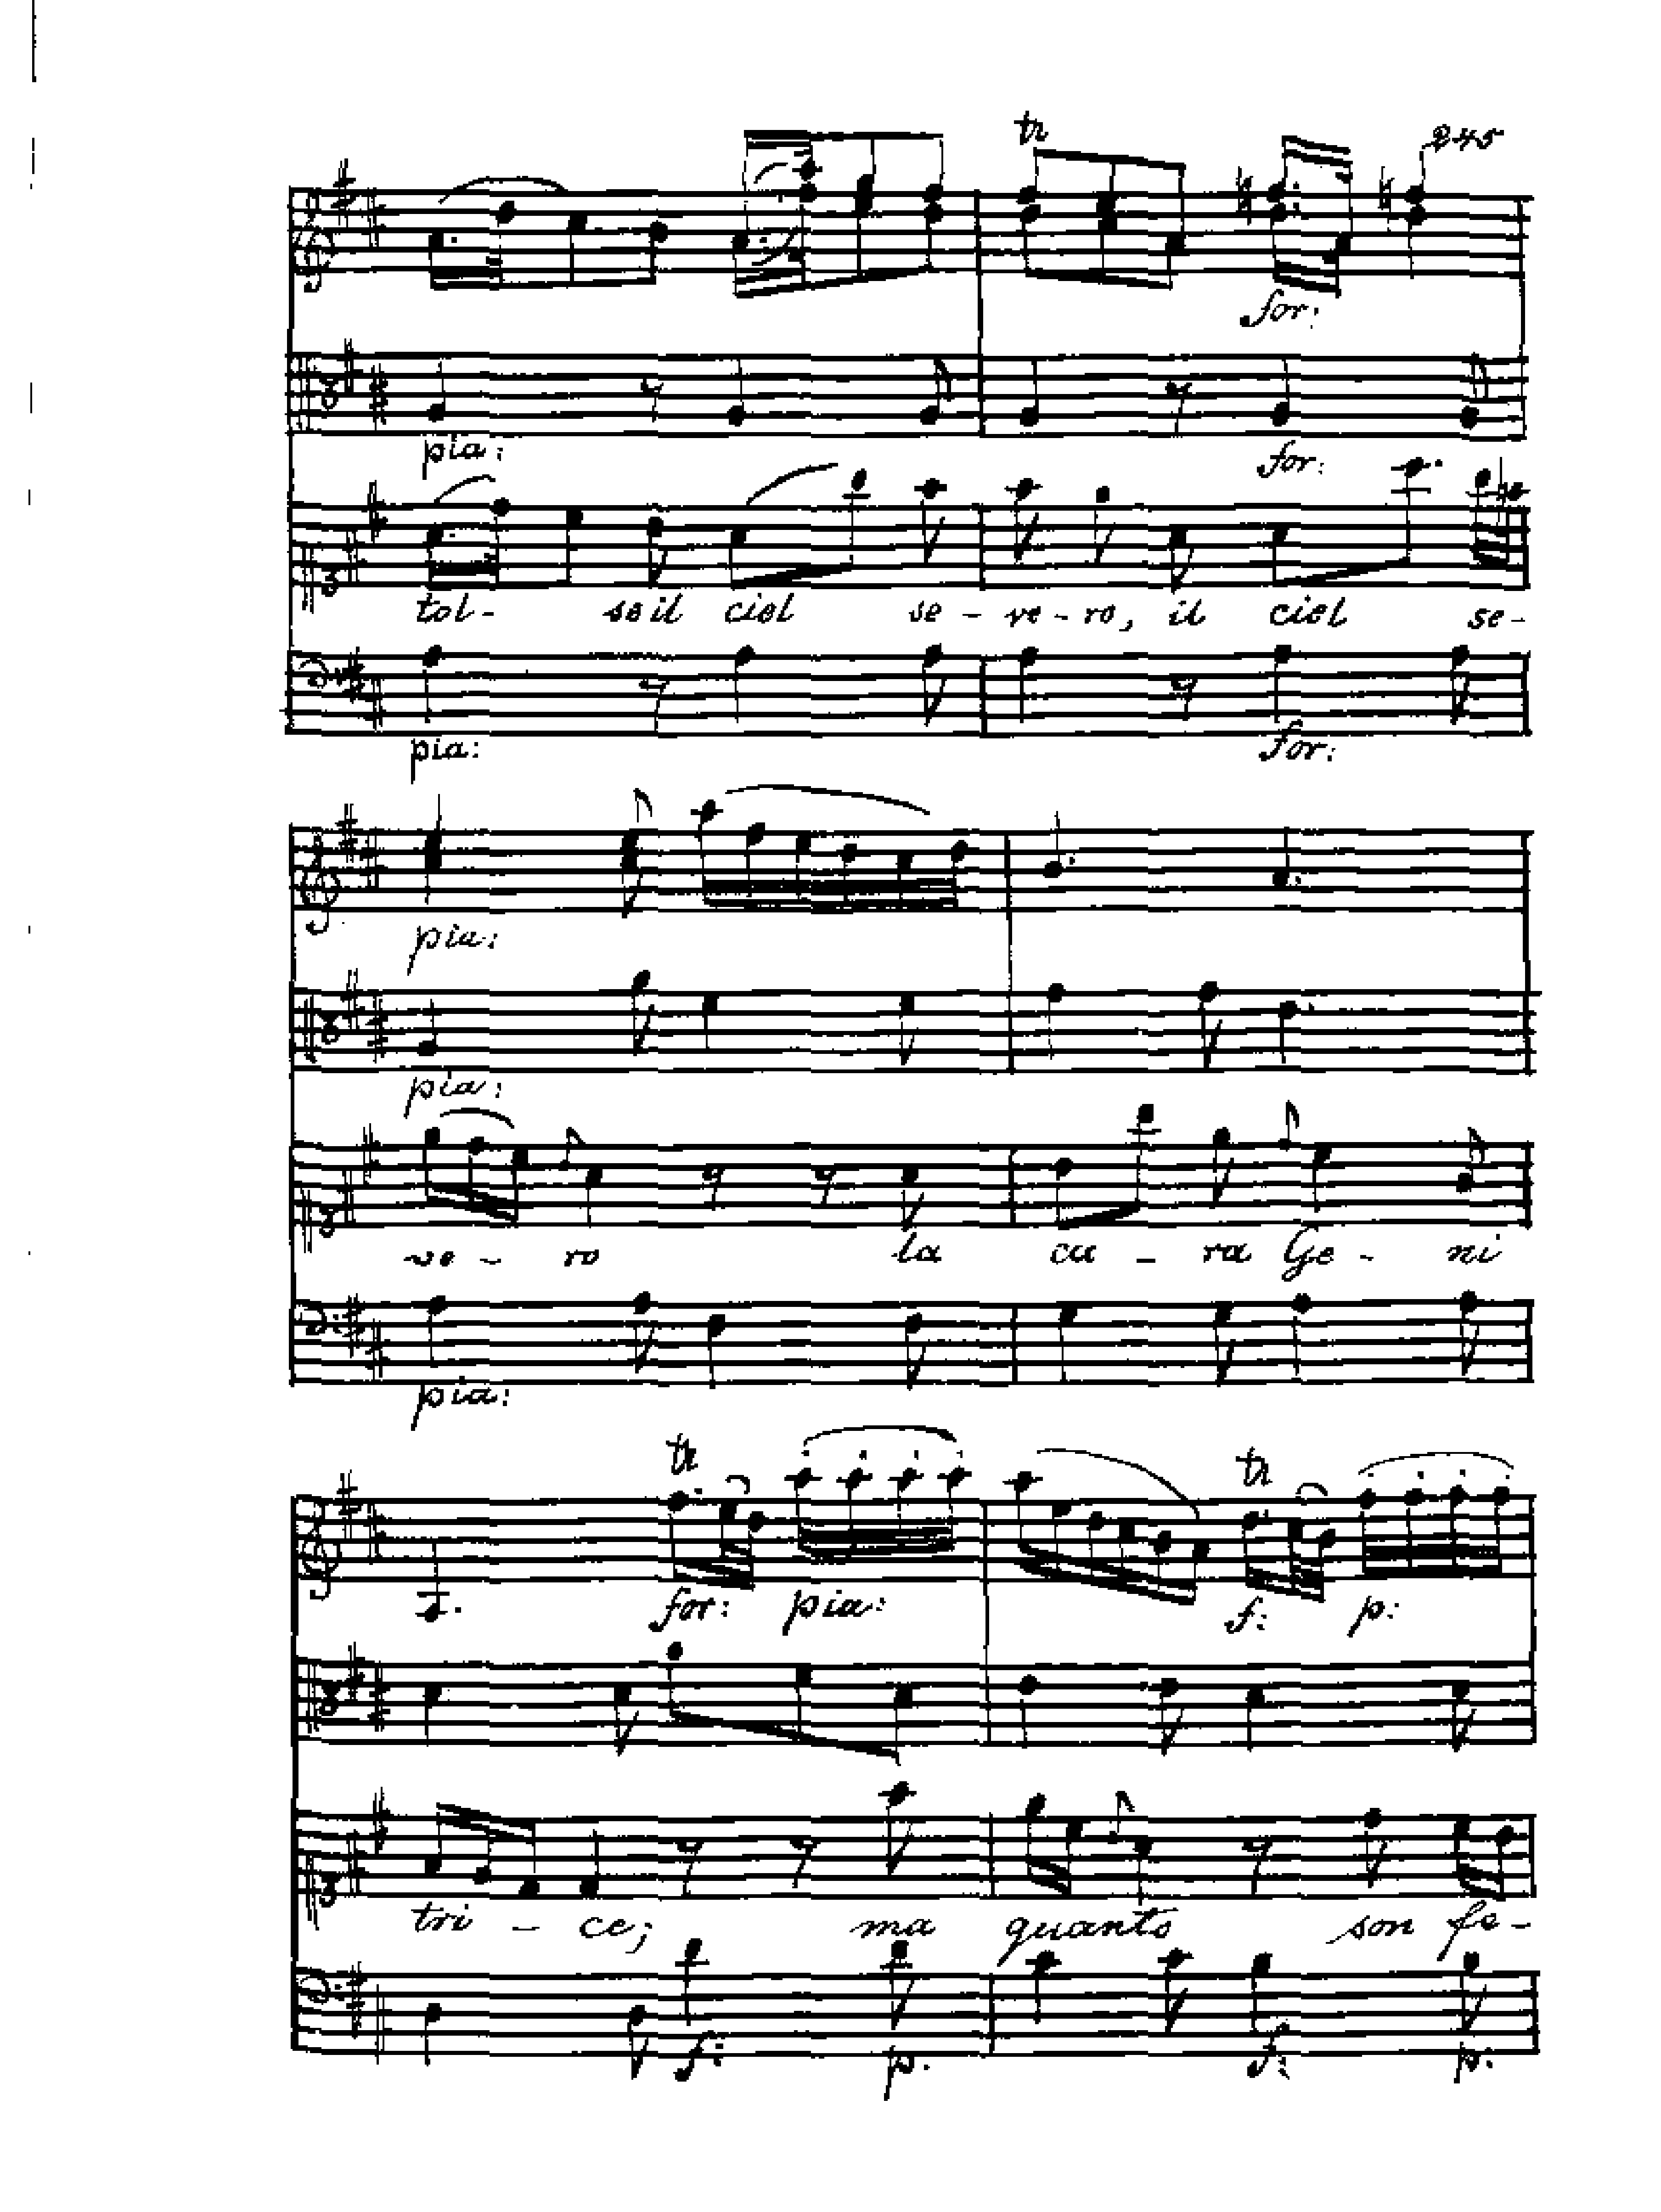 tr 245
for:
pia: for:
tol- se il ciel se-ve-ro, il ciel se-
pia: for:
pia:
pia:
ve- ro la cu-ra Ge- ni
pia:
tr tr
for: pia: f: p:
tri-ce; ma quanto son fe-
f: p. f: p: